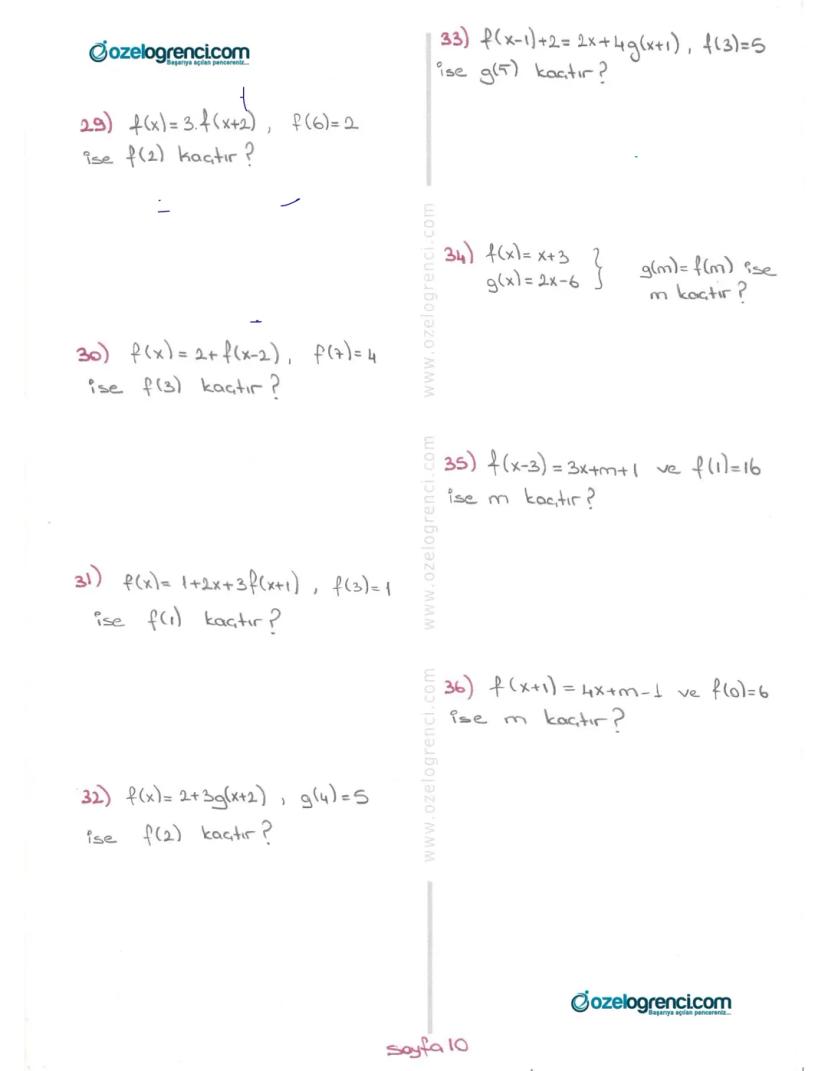 ozelogrenci.com
Başarıya açılan pencereniz...
29) f(x)=3.f(x+2), f(6)=2
ise f(2) kaçtır?
30) f(x)=2+f(x-2), f(7)=4
ise f(3) kaçtır?
31) f(x)=1+2x+3f(x+1), f(3)=1
ise f(1) kaçtır?
32) f(x)=2+3g(x+2), g(4)=5
ise f(2) kaçtır?
www.ozelogrenci.com
www.ozelogrenci.com
www.ozelogrenci.com
33) f(x-1)+2=2x+4g(x+1), f(3)=5
ise g(5) kaçtır?
34) f(x)=x+3
g(x)=2x-6 } g(m)=f(m) ise
m kaçtır?
35) f(x-3)=3x+m+1 ve f(1)=16
ise m kaçtır?
36) f(x+1)=4x+m-1 ve f(0)=6
ise m kaçtır?
ozelogrenci.com
Başarıya açılan pencereniz...
sayfa 10